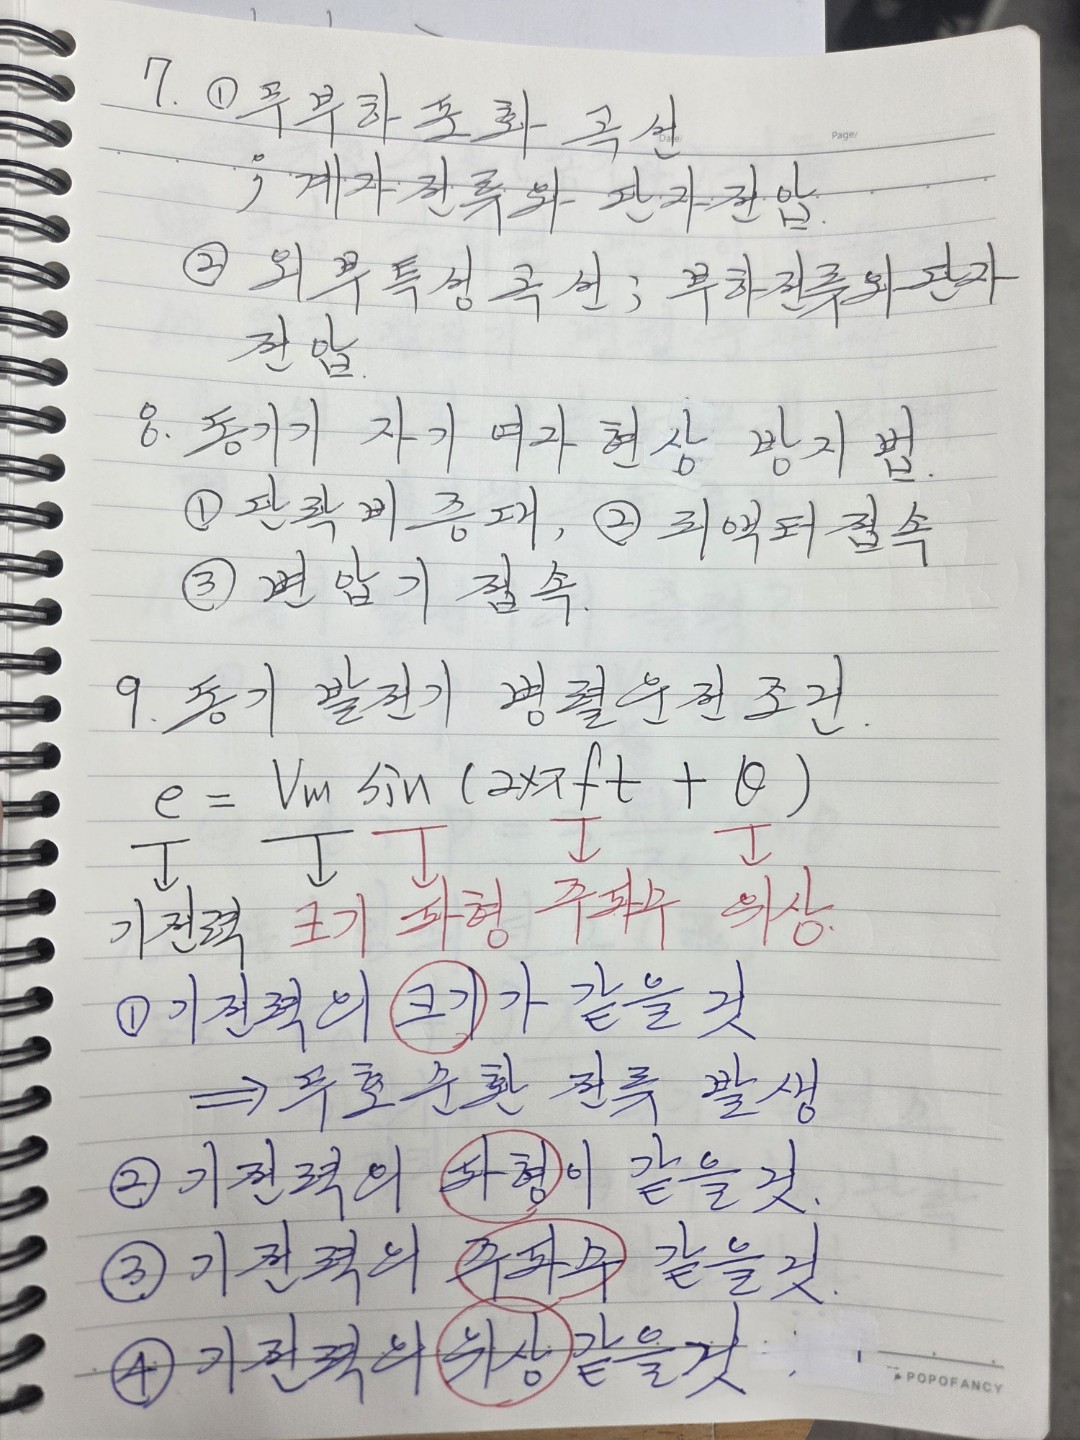 Date/
Page/
7. ① 무부하 포화 곡선
; 계자전류와 단자전압.
② 외부특성 곡선; 부하전류와 단자
전압.
8. 동기기 자기여자현상 방지법.
① 단락비 증대, ② 리액터 접속
③ 변압기 접속.
9. 동기 발전기 병렬운전조건.
e = Vm sin (2×πft + θ)
기전력 크기 파형 주파수 위상.
① 기전력의 크기가 같을것
⇒ 무효순환 전류 발생
② 기전력의 파형이 같을것.
③ 기전력의 주파수 같을것.
④ 기전력의 위상 같을것
POPOFANCY